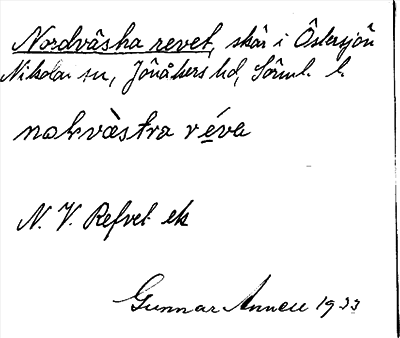 Nordvästra revet, skär i Östersjön
Nikolai sn, Jönåkers hd, Sörml. l.
nolvàstra réva
N. V. Refvet ek
Gunnar Annell 1933